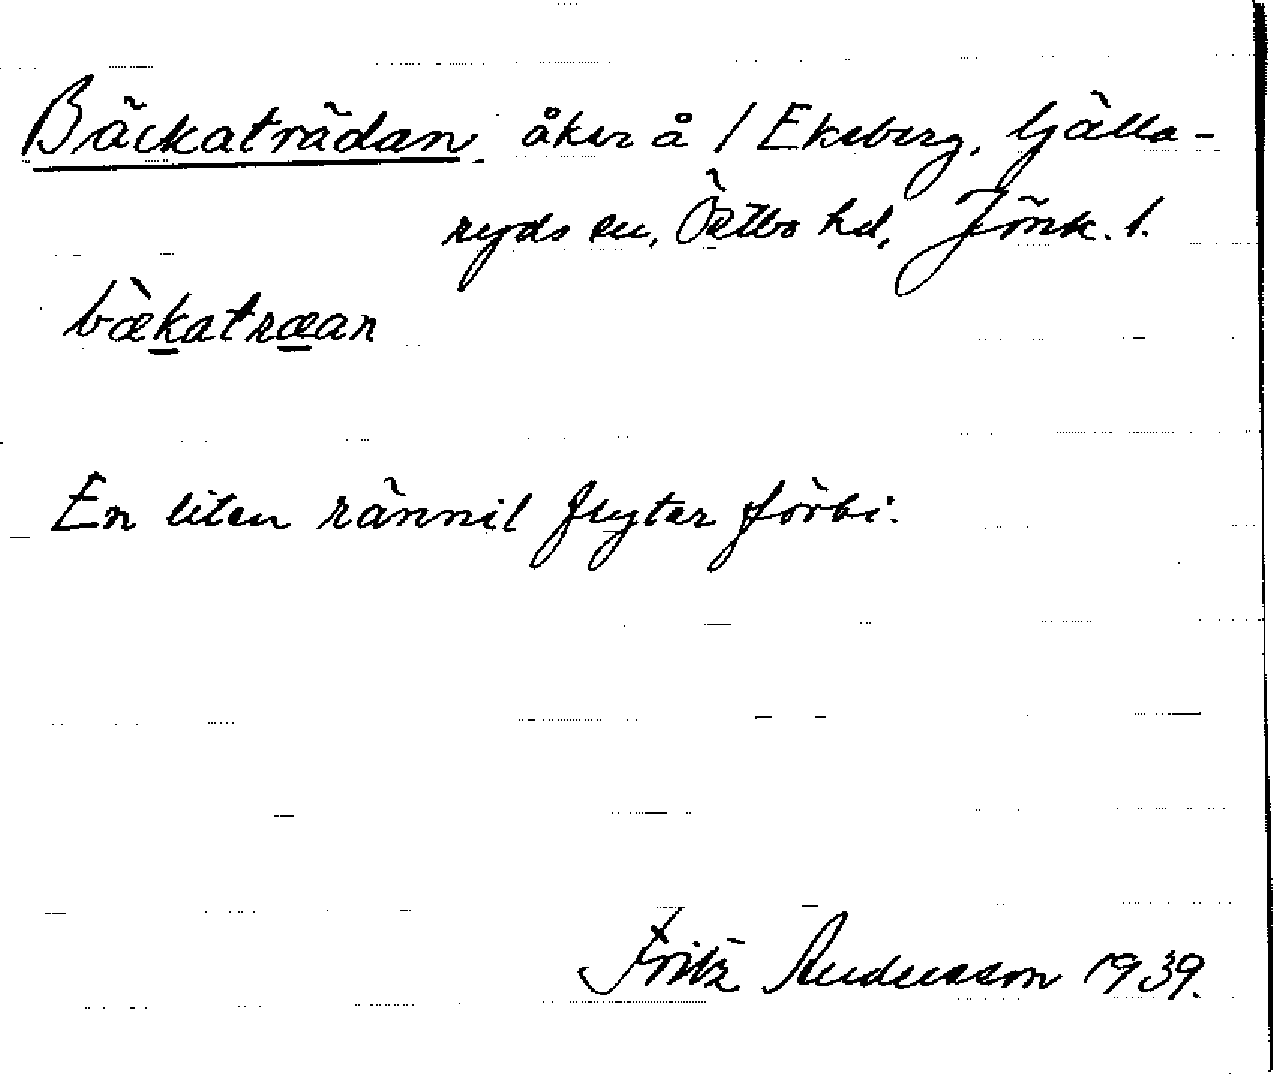 Bäckaträdan, åker å / Ekeberg, Gälla-
ryds sn, Östbo hd, Jönk. l.
bækatræan
En liten rännil flyter förbi.
Fritz Andersson 1939.